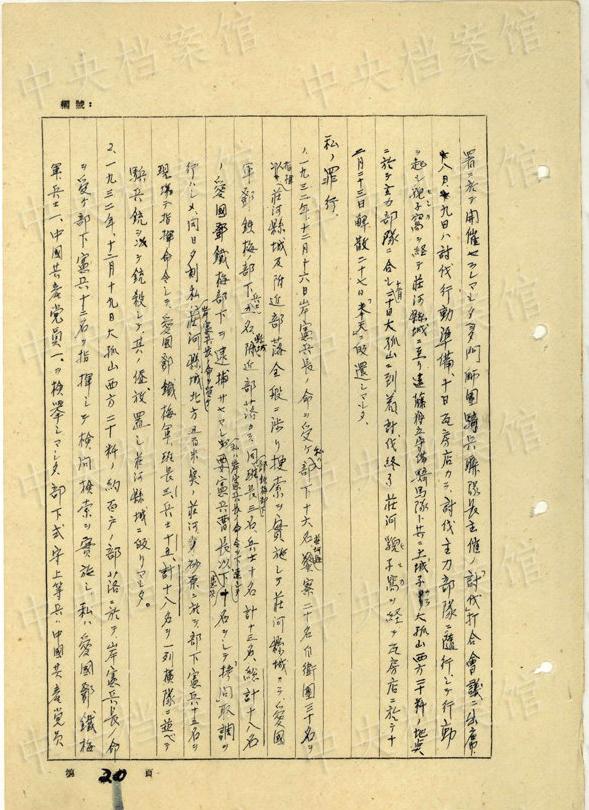 中央档案馆
編號：
署ニ於テ開催セラレマシタ多門師団騎兵聯隊長主催ノ「討伐」打合會議ニ出席
九日ハ討伐行動準備 十日瓦房店カラ討伐主力部隊ニ随行シテ行動
ヲ起シ貔子窩ヲ経テ荘河縣城ニ至リ 大孤山西方二十粁ノ地点
ニ於テ主力部隊ニ合シ 大孤山ニ到着 討伐終了 荘河 貔子窩ヲ経テ瓦房店ニ於テ十
二月二十三日解散 二十七日奉天ニ皈還シマシタ、
私ノ罪行、
1、一九三二年、十二月十六日岸憲兵長ノ命ヲ受ケ部下十六名 警察二十名 自衛團三十名ヲ
指揮 荘河縣城及附近部落全般ニ渉リ捜索ヲ實施シテ荘河縣城ニテ愛國
軍鄧鉄梅ノ部下 名 附近部落カラ同班長三名、兵士十名 計十三名、総計十八名
ノ愛國鄧鐵梅部下ヲ逮捕サセマシタ 憲兵曹長以下 名ヲシテ拷問取調ヲ
行ハシメ、同日夕刻私ハ荘河縣城北方 百米突ノ荘河ノ砂原ニ於テ部下憲兵十五名ヲ
現場デ指揮命令シテ、愛國鄧鐵梅軍、班長三、兵士十五、計十八名ヲ一列横隊ニ並ベテ
騎兵銃ヲ以テ銃殺シテ、其ノ儘放置シ荘河縣城ニ皈リマシタ。
2、一九三二年、十二月十九日大孤山西方二十粁ノ約百戸ノ部落ニ於テ岸憲兵長ノ命
ヲ受ケ部下憲兵十三名ヲ指揮シテ検問検索ヲ實施シ私ハ愛國鄧鐵梅
軍兵士一、中國共産党員一、ヲ検挙シマシタ、部下弍宇上等兵ハ中國共産党員
第 20 頁